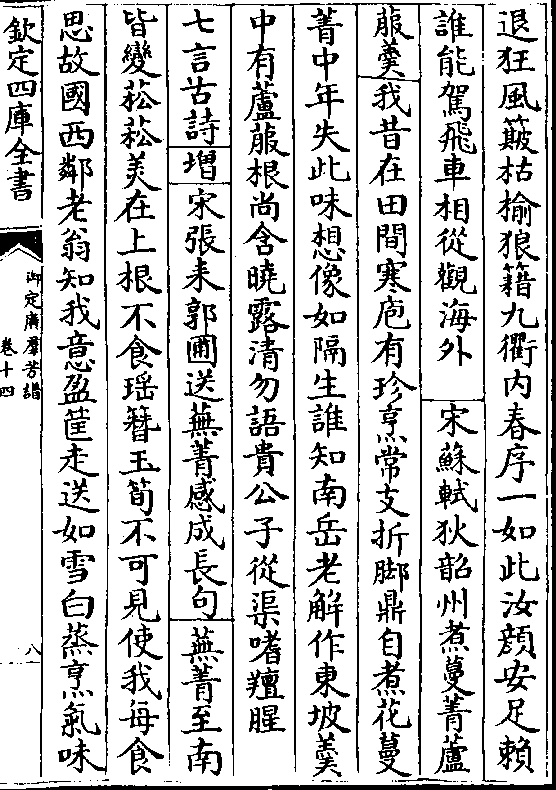 退狂風簸枯榆狼籍九衢内春序一如此汝顔安足賴
誰能駕飛車相從觀海外　宋蘇軾狄韶州煮蔓菁蘆
菔羮我昔在田間寒庖有珍烹常支折脚鼎自煮花蔓
菁中年失此味想像如隔生誰知南岳老解作東坡羮
中有蘆菔根尚含曉露清勿語貴公子從渠嗜羶腥
七言古詩增宋張耒郭圃送蕪菁感成長句　蕪菁至南
皆變菘菘美在上根不食瑶簪玉筍不可見使我每食
思故國西鄰老翁知我意盈筐走送如雪白蒸烹氣味
欽定四庫全書
御定廣羣芳譜
卷十四
八